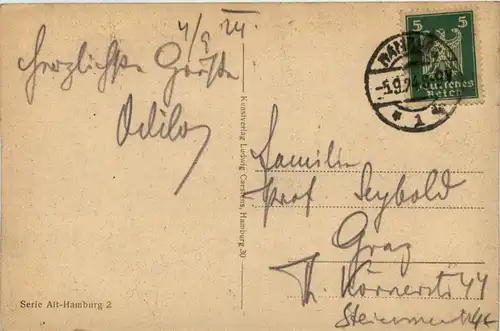 4/9 24.
Herzlichste Grüße
Odilo
Kunstverlag Ludwig Carstens, Hamburg 30
Serie Alt-Hamburg 2
5 5
Deutsches
Reich
-5.9.24
* 1 *
Familie
Prof. Seybold
Graz
Th. Körnerstr 44
Steiermark